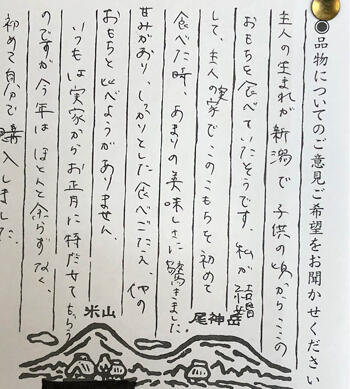 ◉品物についてのご意見ご希望をお聞かせください
主人の生まれが新潟で子供の頃からここの
おもちを食べていたそうです。私が結婚
して、主人の実家でこのこもちを初めて
食べた時、あまりの美味しさに驚きました。
甘みがあり、しっかりとした食べごたえ、他の
おもちと比べようがありません。
いつもは実家からお正月に持たせてもらう
のですが今年はほとんど余らずなく、
初めて自分で購入しました。
米山
尾神岳